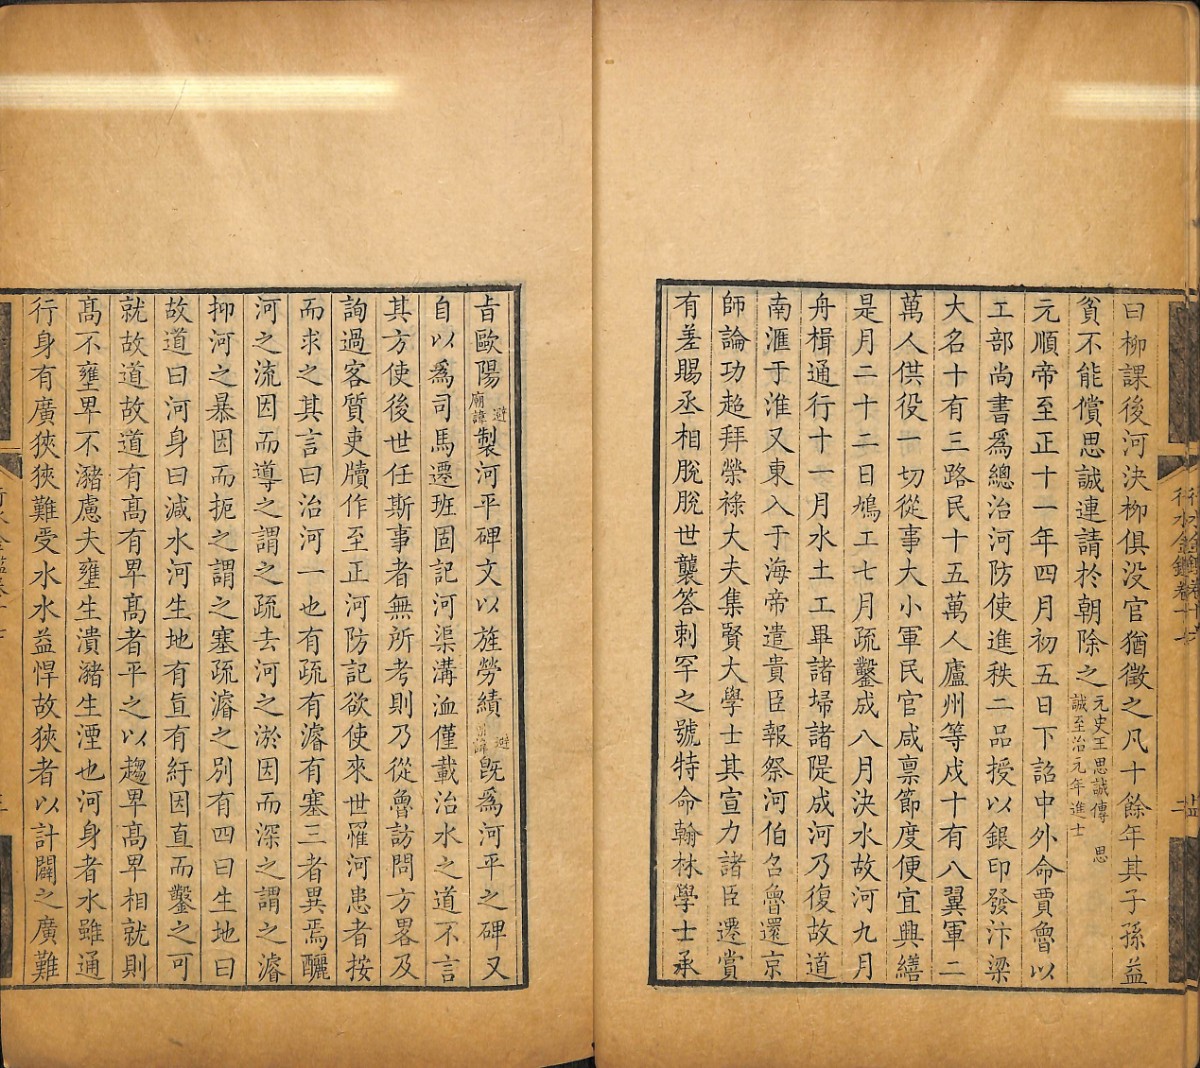 曰柳課後河決柳俱没官猶徵之凡十餘年其子孫益
貧不能償思誠連請於朝除之元史王思誠傳思誠至治元年進士
元順帝至正十一年四月初五日下詔中外命賈魯以
工部尚書爲總治河防使進秩二品授以銀印發汴梁
大名十有三路民十五萬人廬州等戍十有八翼軍二
萬人供役一切從事大小軍民官咸禀節度便宜興繕
是月二十二日鳩工七月疏鑿成八月決水故河九月
舟楫通行十一月水土工畢諸埽諸隄成河乃復故道
南滙于淮又東入于海帝遣貴臣報祭河伯召魯還京
師論功超拜榮祿大夫集賢大學士其宣力諸臣遷賞
有差賜丞相脫脫世襲答剌罕之號特命翰林學士承
行水金鑑卷十七
二
旨歐陽避廟諱製河平碑文以旌勞績避諱旣爲河平之碑又
自以爲司馬遷班固記河渠溝洫僅載治水之道不言
其方使後世任斯事者無所考則乃從魯訪問方畧及
詢過客質吏牘作至正河防記欲使來世罹河患者按
而求之其言曰治河一也有疏有濬有塞三者異焉釃
河之流因而導之謂之疏去河之淤因而深之謂之濬
抑河之暴因而扼之謂之塞疏濬之别有四曰生地曰
故道曰河身曰減水河生地有直有紆因直而鑿之可
就故道故道有高有卑高者平之以趨卑高卑相就則
高不壅卑不瀦慮夫壅生潰瀦生湮也河身者水雖通
行身有廣狹狹難受水水益悍故狹者以計闢之廣難